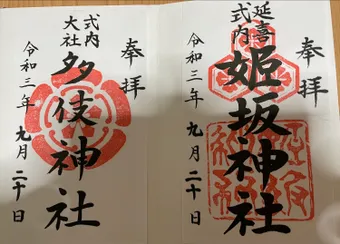 奉拝
延喜
式内
姫坂神社
令和三年 九月二十日
奉拝
式内
大社
多伎神社
令和三年 九月二十日